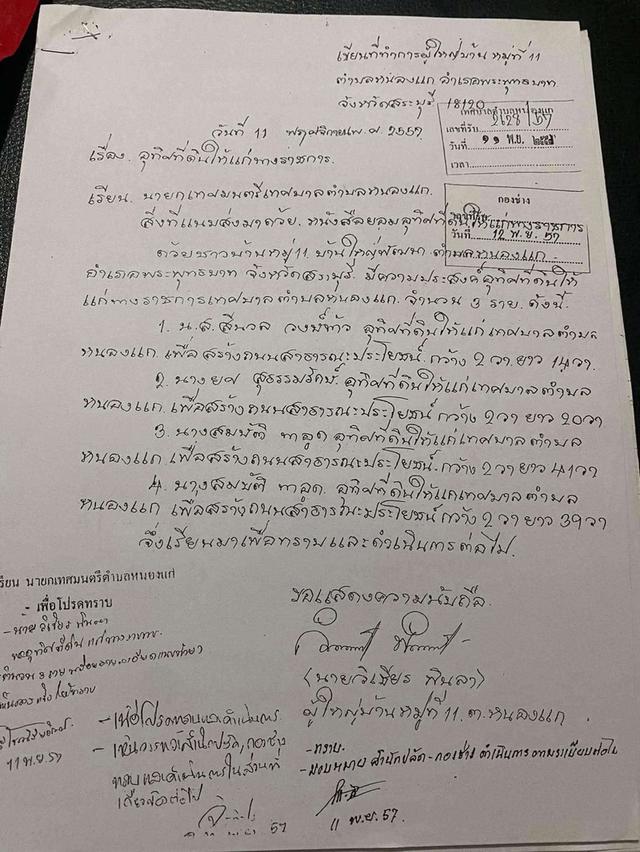 เขียนที่ทำการผู้ใหญ่บ้าน หมู่ที่ 11
ตำบลหนองแก อำเภอพระพุทธบาท
จังหวัดสระบุรี 18120
เลขที่รับ 2128/57
วันที่ 11 พ.ย. 2557
เวลา
วันที่ 11 พฤศจิกายน พ.ศ. 2557
เรื่อง. อุทิศที่ดินให้แก่ทางราชการ.
เรียน. นายกเทศมนตรีเทศบาลตำบลหนองแก.
กองช่าง
วันที่ 12 พ.ย. 57
สิ่งที่แนบส่งมาด้วย. หนังสือยอมอุทิศที่ดินให้แก่ทางราชการ
ด้วยชาวบ้านหมู่ 11 บ้านใหญ่พัฒนา ตำบลหนองแก
อำเภอพระพุทธบาท จังหวัดสระบุรี. มีความประสงค์อุทิศที่ดินให้
แก่ทางราชการเทศบาลตำบลหนองแก. จำนวน 3 ราย. ดังนี้.
1. น.ส. สีนวล วงษ์ท้าว อุทิศที่ดินให้แก่เทศบาลตำบล
หนองแก. เพื่อสร้างถนนสาธารณะประโยชน์. กว้าง 2 วา. ยาว 14 วา.
2. นางยศ สุธรรมรักษ์. อุทิศที่ดินให้แก่เทศบาลตำบล
หนองแก. เพื่อสร้างถนนสาธารณะประโยชน์ กว้าง 2 วา ยาว 20 วา
3. นางสมบัติ อุทิศที่ดินให้แก่เทศบาลตำบล
หนองแก เพื่อสร้างถนนสาธารณะประโยชน์. กว้าง 2 วา ยาว 41 วา
4. นางสมบัติ อุทิศที่ดินให้แก่เทศบาลตำบล
หนองแก เพื่อสร้างถนนสาธารณะประโยชน์ กว้าง 2 วา ยาว 39 วา
จึงเรียนมาเพื่อทราบและดำเนินการต่อไป.
ขอแสดงความนับถือ.
(นายวิเชียร พินลา)
ผู้ใหญ่บ้านหมู่ที่ 11. ต. หนองแก
เรียน นายกเทศมนตรีตำบลหนองแก
- เพื่อโปรดทราบ
- นายวิเชียร พินลา
11 พ.ย. 57
- เพื่อโปรดทราบและดำเนินการ
- เห็นควรแจ้งสำนักปลัด, กองช่าง
ทราบและดำเนินการในส่วนที่
เกี่ยวข้องต่อไป
พ.ย. 57
- ทราบ.
- มอบหมาย สำนักปลัด - กองช่าง ดำเนินการตามระเบียบต่อไป
11 พ.ย. 57